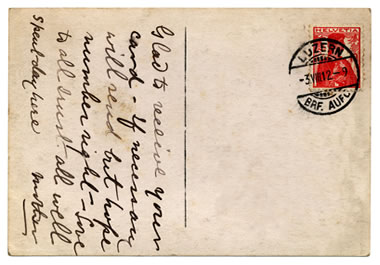 Glad to receive your
card - If necessary
will send but hope
number right - Love
to all trust all well
Spent day here Mother
HELVETIA
LUZERN
-3.VIII.12.-9
BRF. AUFG.